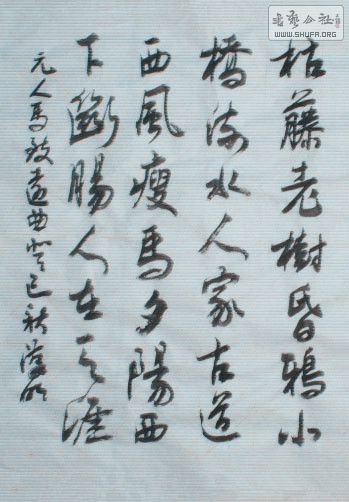 枯藤老樹昏鴉小
橋流水人家古道
西風瘦馬夕陽西
下斷腸人在天涯
元人馬致遠曲癸巳秋
書藝公社
WWW.SHUFA.ORG